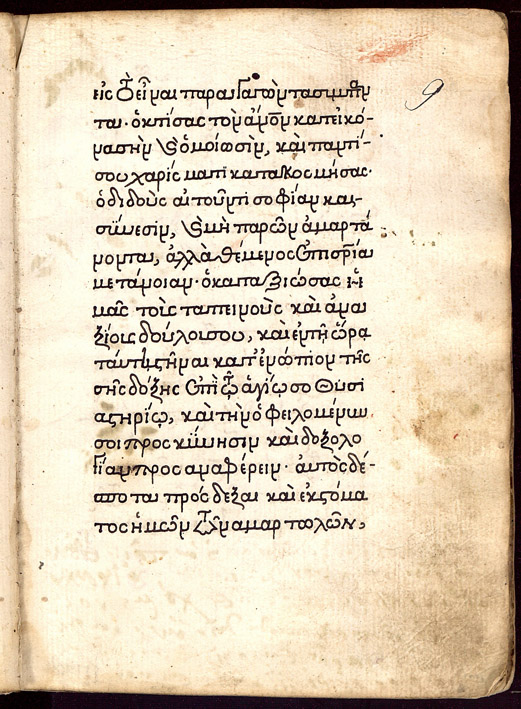 9
εἰς τὸ εἶναι παραγαγὼν τὰ σύμπαν
τα· ὁ κτίσας τὸν ἄνον κατ εἰκό-
να σὴν καὶ ὁμοίωσιν, καὶ παντί
σου χαρίσματι κατακοσμήσας·
ὁ διδοὺς αἰτοῦντι σοφίαν καὶ
σύνεσιν, καὶ μὴ παρορῶν ἁμαρτά
νοντα, ἀλλὰ θέμενος ἐπὶ σρίαν
μετάνοιαν· ὁ καταξιώσας ἡ
μᾶς τοὺς ταπεινοὺς καὶ ἀνα
ξίους δούλους σου, καὶ ἐν τῇ ὥρᾳ
ταύτῃ στῆναι κατ ἐνώπιον τῆς
σῆς δόξης ἐπὶ τῷ ἁγίῳ σου θυσι
αστηρίῳ, καὶ τὴν ὀφειλομένην
σοι προσκύνησιν καὶ δοξολο
γίαν προσαναφέρειν· αὐτὸς δέ-
σποτα πρόσδεξαι καὶ ἐκ στόμα
τος ἡμῶν τῶν ἁμαρτωλῶν,